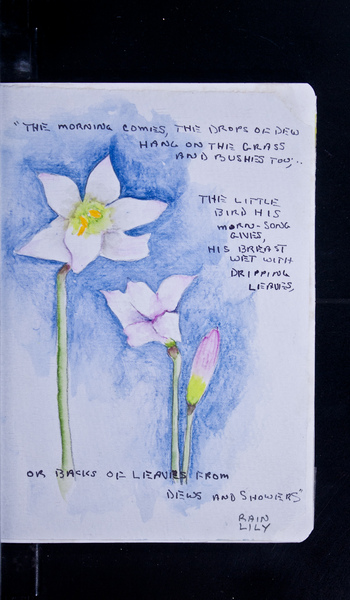 "THE MORNING COMES, THE DROPS OF DEW
HANG ON THE GRASS
AND BUSHES TOO;..
THE LITTLE
BIRD HIS
MORN-SONG
GIVES,
HIS BREAST
WET WITH
DRIPPING
LEAVES,
OR BACKS OF LEAVES FROM
DEWS AND SHOWERS"
RAIN
LILY